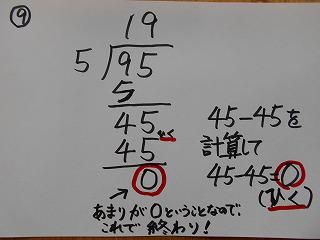 ⑨
19
5)95
5
45
ひく
45
0
あまりが0ということなので、
これで終わり！
45-45を
計算して
45-45=0
(ひく)